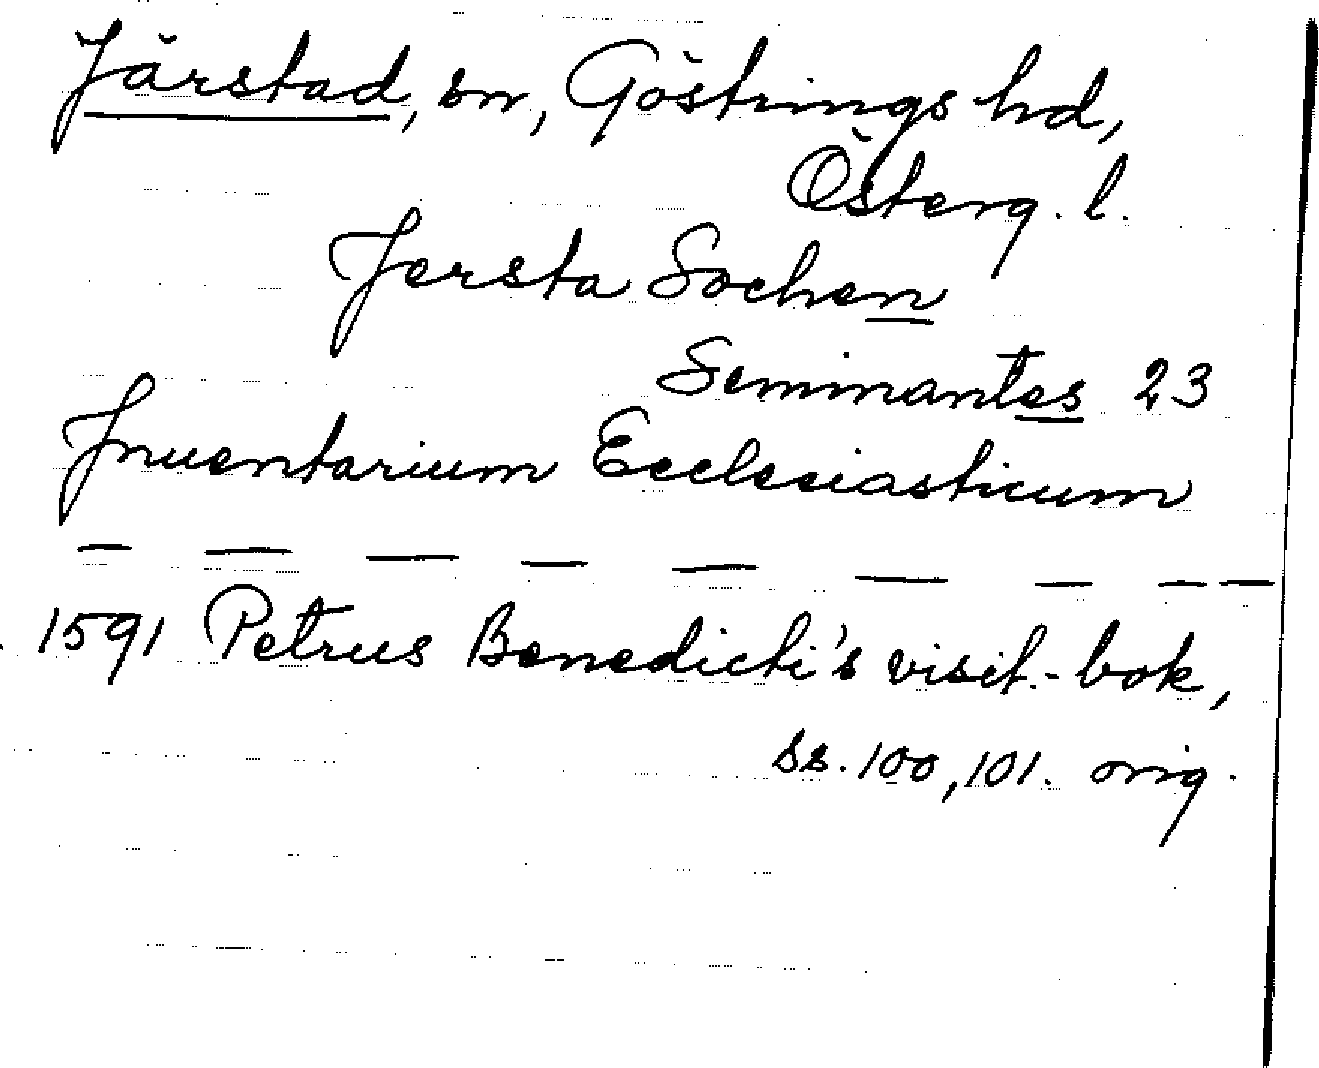 Järstad, sn, Göstrings hd,
Österg. l.
Jersta Sochen
Seminantes 23
Inuentarium Ecclesiasticum
— — — — — — — — —
1591 Petrus Benedicti's visit.-bok,
ss. 100, 101. orig.